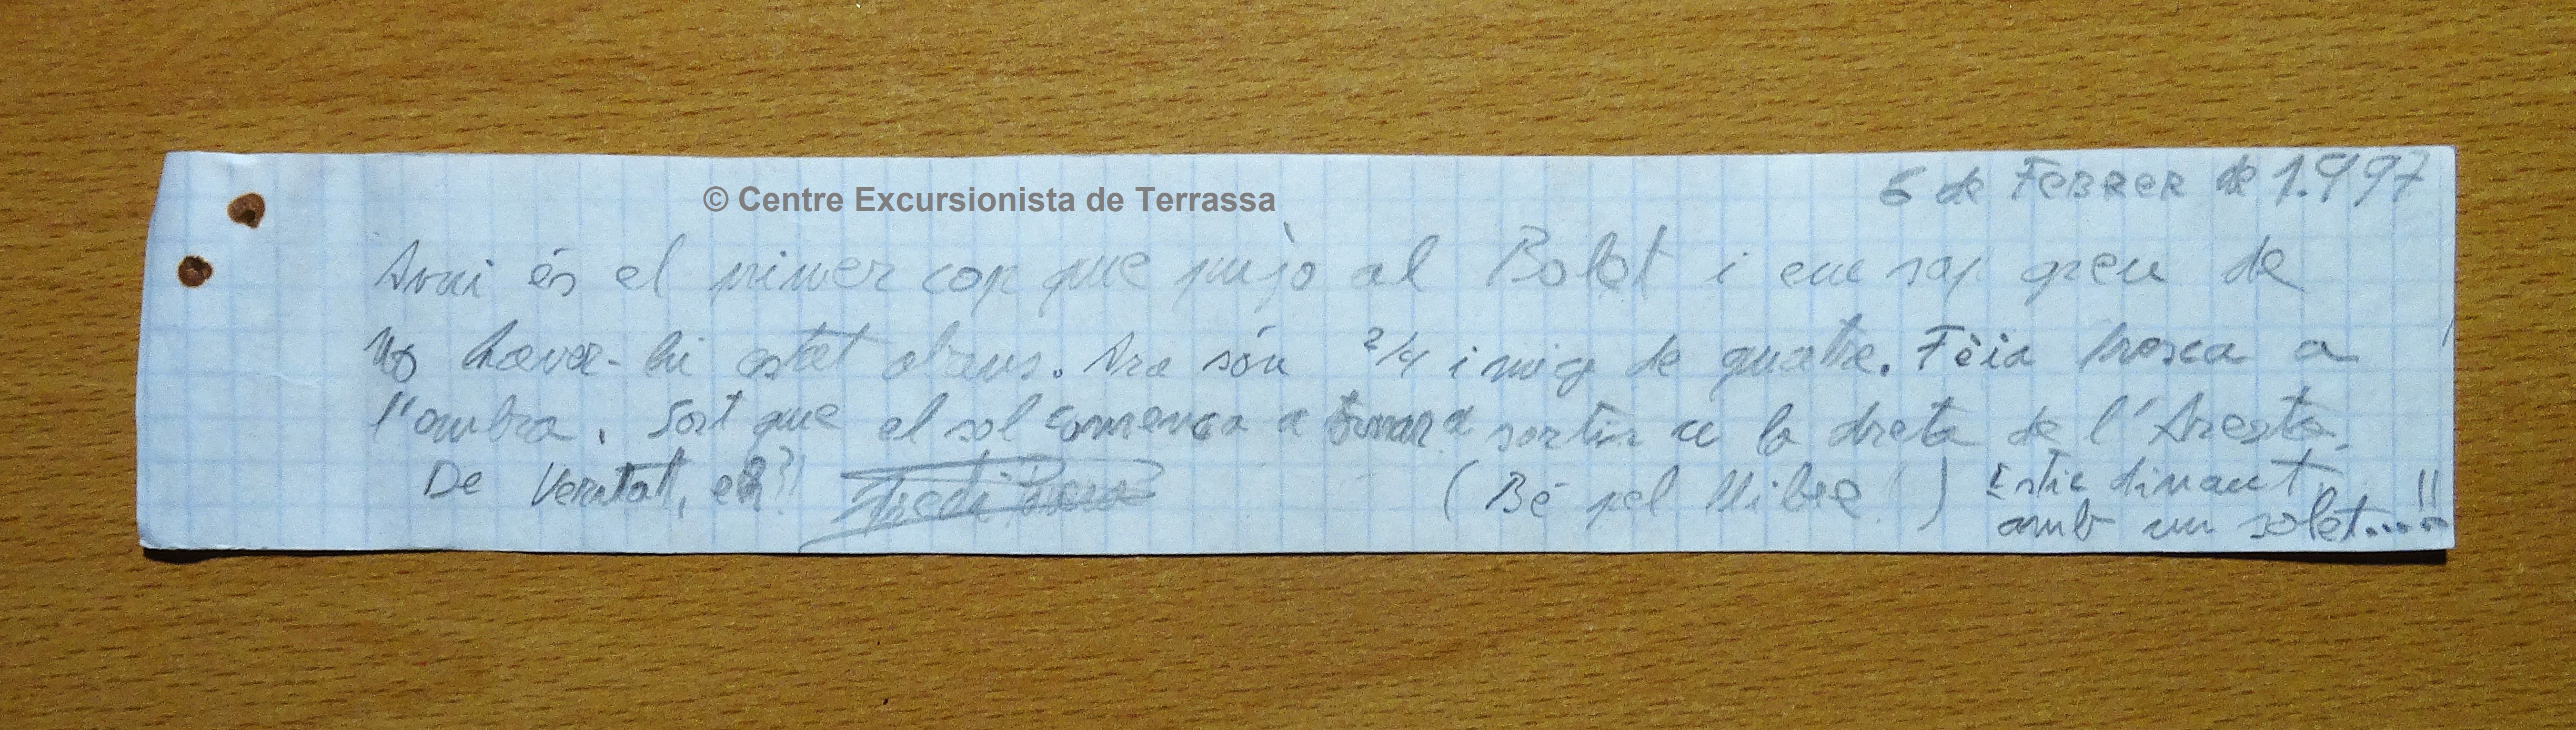 © Centre Excursionista de Terrassa
6 de Febrer de 1.997
Avui és el primer cop que pujo al Bolet i em sap greu de
no haver-hi estat abans. Ara són 2/4 i mig de quatre. Fèia fresca a
l'ombra. Sort que el sol comença a tornar a sortir a la dreta de l'Aresta.
De Veritat, eh?!
(Bé pel llibre!) Estic dinant
amb un solet....!!